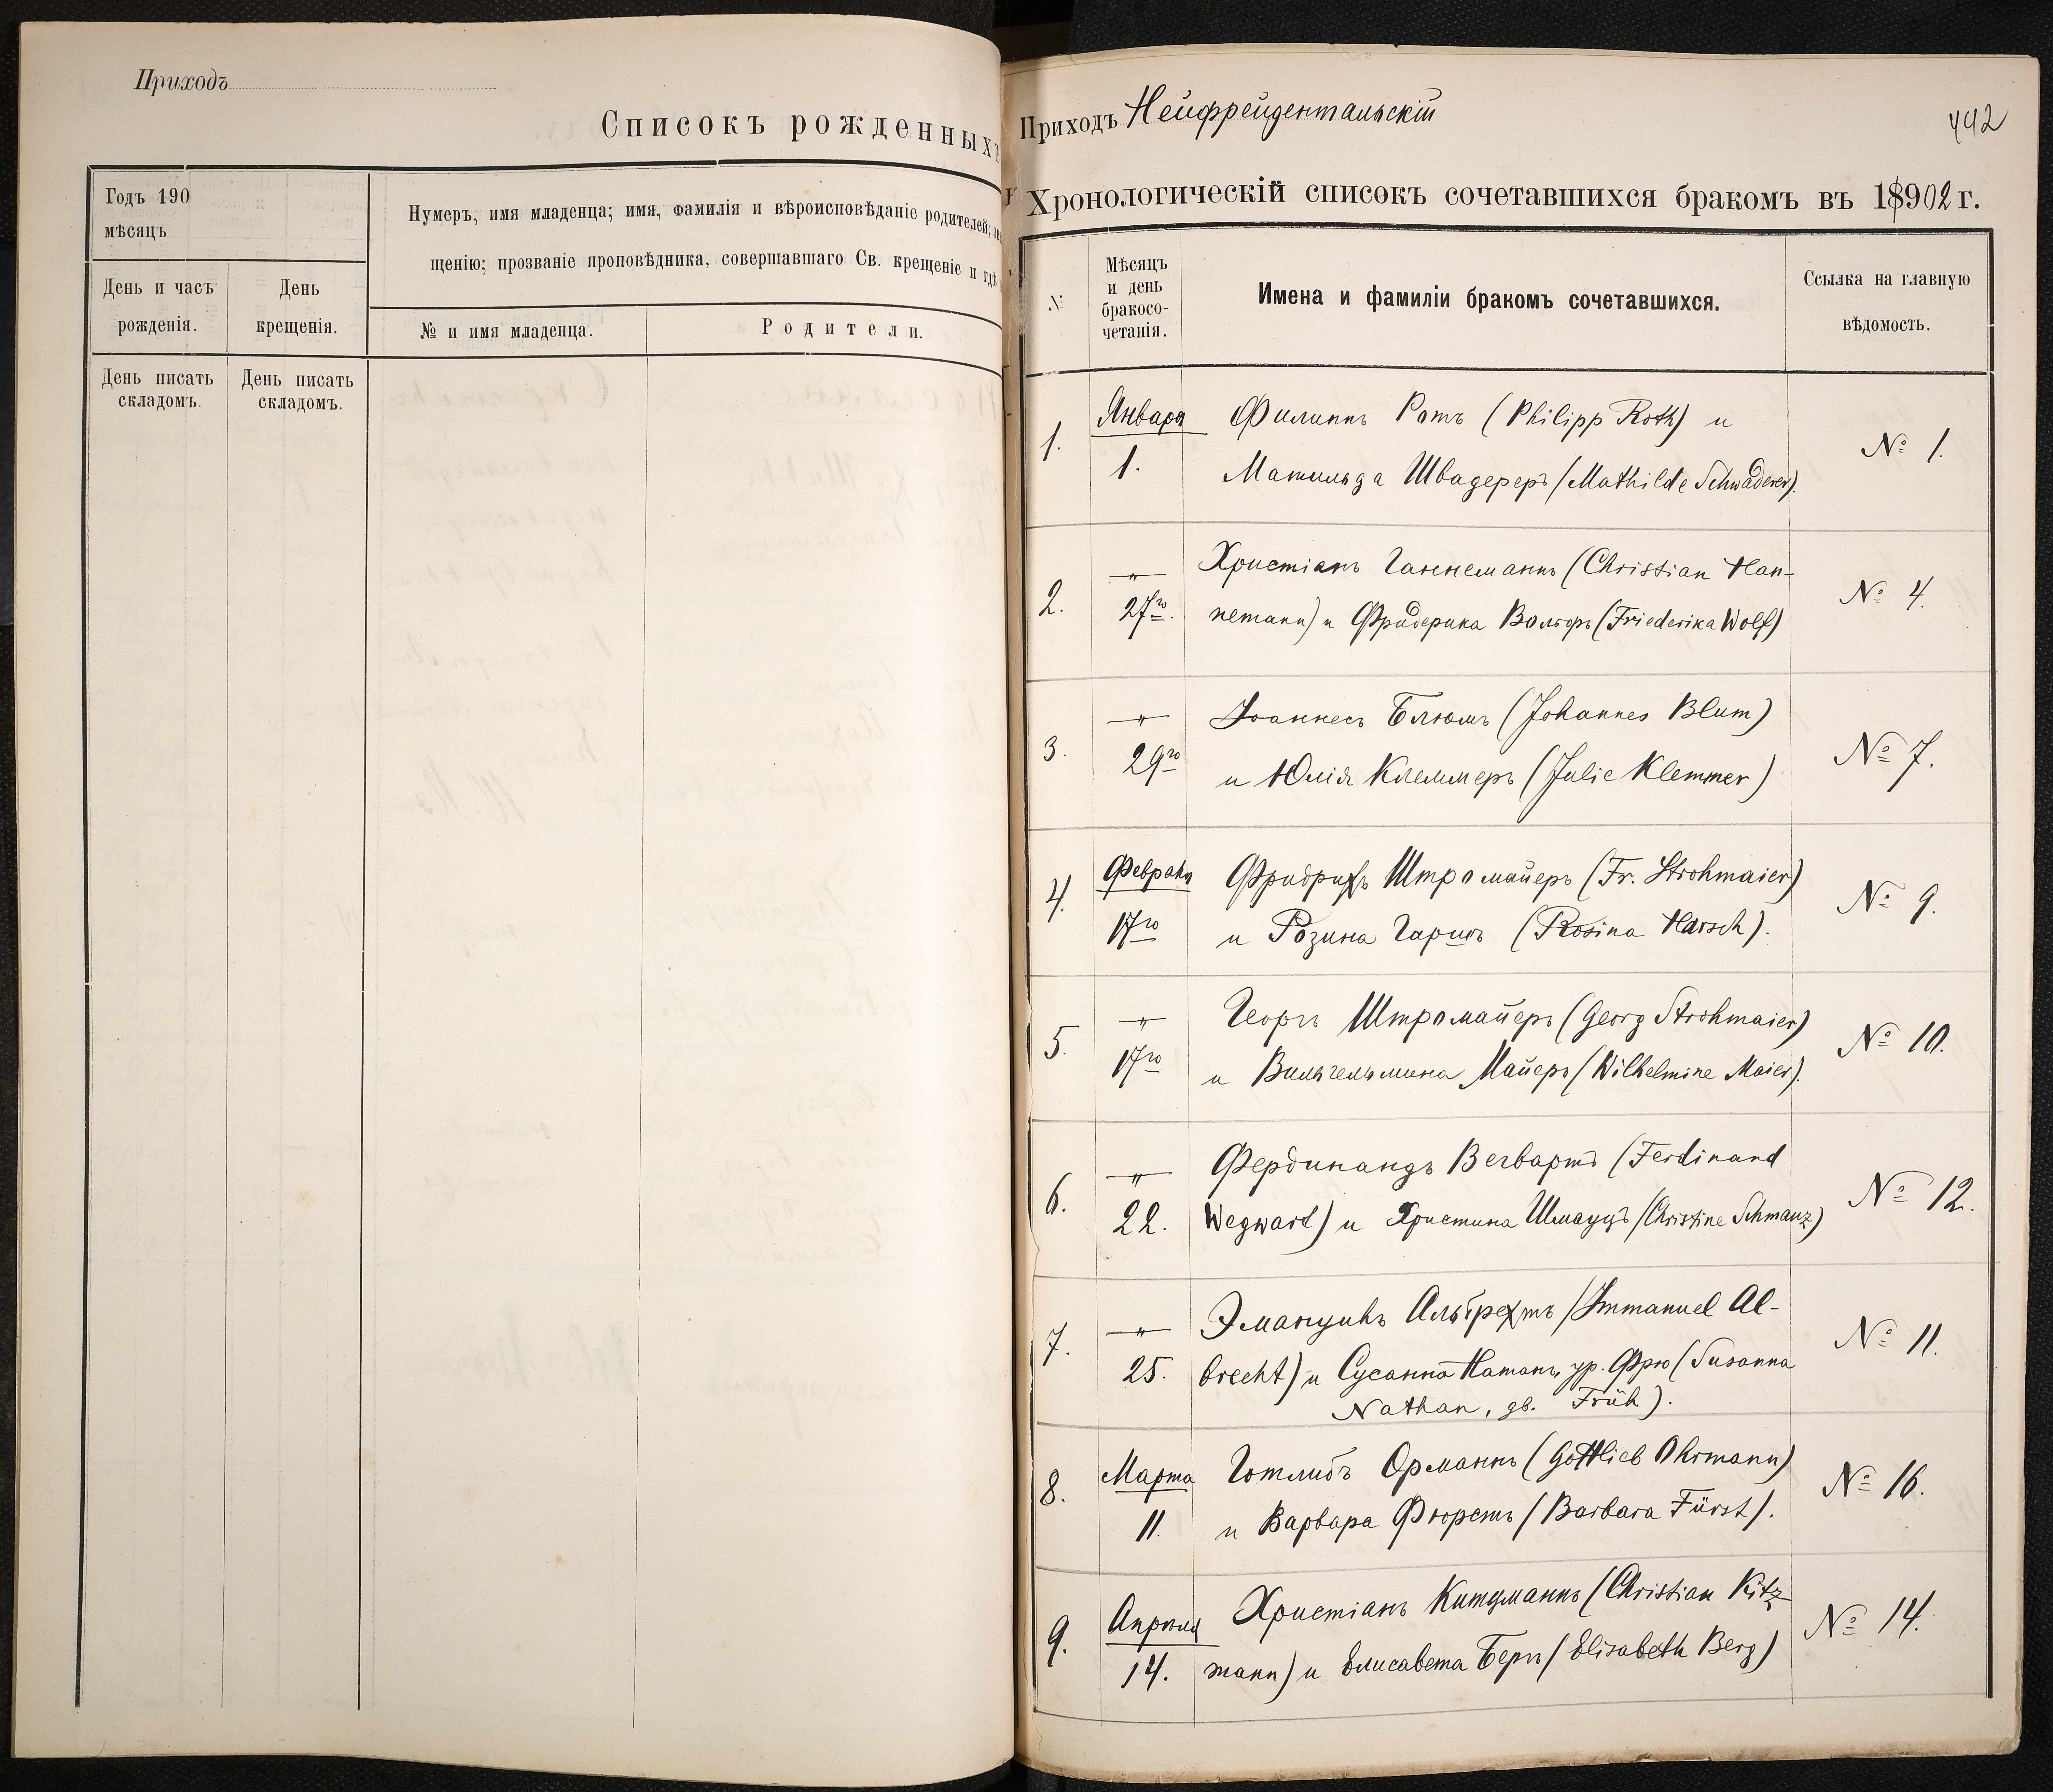 Приходъ
Списокъ рожденныхъ
Годъ 190
мѣсяцъ
Нумеръ, имя младенца; имя, фамилія и вѣроисповѣданіе родителей;
щенію; прозваніе проповѣдника, совершавшаго Св. крещеніе и гдѣ
День и часъ
рожденія.
День
крещенія.
№ и имя младенца.
Родители.
День писать
складомъ.
День писать
складомъ.
Приходъ Нейфрейдентальскій
442
Хронологическій списокъ сочетавшихся бракомъ въ 18902 г.
№
Мѣсяцъ
и день
бракосо-
четанія.
Имена и фамиліи бракомъ сочетавшихся.
Ссылка на главную
вѣдомость.
1.
Января
1.
Филиппъ Ротъ (Philipp Roth) и
Матильда Швадереръ (Mathilde Schwaderer).
№ 1.
2.
—"—
27го.
Христіанъ Ганнеманнъ (Christian Han-
nemann) и Фридерика Вольфъ (Friederika Wolf)
№ 4.
3.
—"—
29го
Іоаннесъ Блюмъ (Johannes Blum)
и Юлія Клеммеръ (Julie Klemmer)
№ 7.
4.
Февраля
17го
Фридрихъ Штромайеръ (Fr. Strohmaier)
и Розина Гаршъ (Rosina Harsch).
№ 9.
5.
—"—
17го
Георгъ Штромайеръ (Georg Strohmaier)
и Вильгельмина Майеръ (Wilhelmine Maier).
№ 10.
6.
—"—
22.
Фердинандъ Вегвартъ (Ferdinand
Wegwart) и Христина Шмауцъ (Christine Schmauz)
№ 12.
7.
—"—
25.
Эмануилъ Альбрехтъ (Immanuel Al-
brecht) и Сусанна Натанъ, ур. Фрю (Susanna
Nathan, gb. Früh).
№ 11.
8.
Марта
11.
Готлибъ Орманнъ (Gottlieb Ohrmann)
и Варвара Фюрстъ (Barbara Fürst).
№ 16.
9.
Апрѣля
14.
Христіанъ Китцманнъ (Christian Kitz-
mann) и Елисавета Бергъ (Elisabeth Berg)
№ 14.